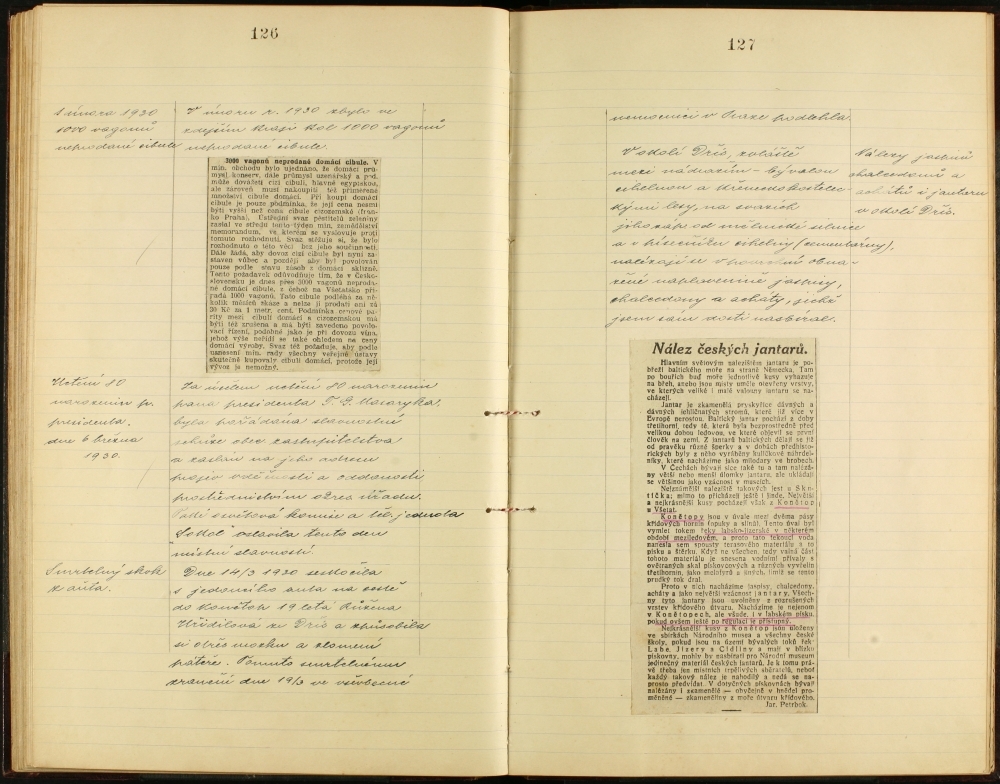 126
S února 1930
1000 vagonů
neprodané cibule
V únoru r. 1930 zbylo ve
zdejším kraji kol 1000 vagonů
neprodané cibule.
3000 vagonů neprodané domácí cibule. V
min. obchodu bylo ujednáno, že domácí prů-
mysl konserv, dále průmysl uzenářský a pod.
může dovážeti cizí cibuli, hlavně egyptskou,
ale zároveň musí nakoupiti též přiměřené
množství cibule domácí. Při koupi domácí
cibule je pouze podmínka, že její cena nesmí
býti vyšší než cena cibule cizozemské (fran-
ko Praha). Ústřední svaz pěstitelů zeleniny
zaslal ve středu tento týden min. zemědělství
memorandum, ve kterém se vyslovuje proti
tomuto rozhodnutí. Svaz stěžuje si, že bylo
rozhodnuto o této věci bez jeho součinnosti.
Dále žádá, aby dovoz cizí cibule byl nyní za-
staven vůbec a později aby byl povolován
pouze podle stavu zásob z domácí sklizně.
Tento požadavek odůvodňuje tím, že v Česko-
slovensku je dnes přes 3000 vagonů neprodá-
né domácí cibule, z čehož na Všetatsko při-
padá 1000 vagonů. Tato cibule podléhá za ně-
kolik měsíců zkáze a nelze ji prodati ani za
20 Kč za 1 metr. cent. Podmínka cenové pa-
rity mezi cibulí domácí a cizozemskou má
býti též zrušena a má býti zavedeno povolo-
vací řízení, podobné jako je při dovozu vína,
jehož výše neřídí se také ohledem na ceny
domácí výroby. Svaz též požaduje, aby podle
usnesení min. rady všechny veřejné ústavy
skutečně kupovaly cibuli domácí, protože její
vývoz je nemožný.
Uctění 80
narozenin p.
presidenta.
dne 6 března
1930.
Za účelem uctění 80 narozenin
pana presidenta T. G. Masaryka
byla pořádána slavnostní
schůze obec. zastupitelstva
a zaslán na jeho adresu
projev oddanosti
prostřednictvím okres. úřadu.
osvětová komise a těl. jednota
Sokol oslavila tento den
místní slavností.
Smrtelný skok
z auta.
Dne 14/3 1930 seskočila
s jedoucího auta na cestě
do Konětop 19 letá Růžena
ze Dřís a způsobila
si otřes mozku a zlomení
páteře. Tomuto smrtelnému
zranění dne 19/3 ve všeobecné
127
nemocnici v Praze podlehla.
V okolí Dřís, zvláště
mezi nádražím - bývalou
cihelnou a Křenecko-kostelec-
kými lesy, na svazích
jihozáp. od mělnické silnice
a v písečníku cihelny (cementárny),
nalézají se v povrchu obna-
žené naplaveniny jaspisy,
chalcedony a acháty, jichž
jsem sám dosti nasbíral.
Nálezy jaspisů
chalcedonů a
achátů i jantaru
v okolí Dřís.
Nález českých jantarů.
Hlavním světovým nalezištěm jantaru je po-
břeží baltického moře na straně Německa. Tam
po bouřích buď moře jednotlivé kusy vyhazuje
na břeh, anebo jsou místy uměle otevřeny vrstvy,
ve kterých veliké i malé valouny jantaru se na-
cházejí.
Jantar je zkamenělá pryskyřice dávných a
dávných jehličnatých stromů, které již více v
Evropě nerostou. Baltický jantar pochází z doby
třetihorní, tedy té, která byla bezprostředně před
velikou dobou ledovou, ve které objevil se první
člověk na zemi. Z jantarů baltických dělali se již
od pravěku různé šperky a v dobách předhisto-
rických byly z něho vyráběny kuličkové náhrdel-
níky, které nacházíme jako milodary ve hrobech.
V Čechách bývají sice také tu a tam naléza-
ny větší nebo menší úlomky jantaru, ale ukládají
se většinou jako vzácnost v museích.
Nejznámější naleziště takových jest u Sku-
tíčka; mimo to přicházejí ještě i jinde. Největší
a nejkrásnější kusy pocházejí však z Konětop
u Všetat.
Konětopy jsou v úvale mezi dvěma pásy
křídových hornin (opuky a slinů). Tento úval byl
vymlet tokem řeky labsko-jizerské v některém
období meziledovém, a proto tato tekoucí voda
nanesla sem spousty terasového materiálu a to
písku a štěrku. Když ne všechen, tedy valná část
tohoto materiálu je snesena vodními přívaly s
ověraných skal pískovcových a různých vyvřelin
třetihorních, jako melafyrů a jiných, jimiž se tento
prudký tok dral.
Proto v nich nacházíme jaspisy, chalcedony,
acháty a jako největší vzácnost jantary. Všech-
ny tyto jantary jsou uvolněny z rozrušených
vrstev křídového útvaru. Nacházíme je nejenom
v Konětopech, ale všude, i v labském písku,
pokud ovšem ještě po regulaci je přístupný.
Nejkrásnější kusy z Konětop jsou uloženy
ve sbírkách Národního musea a všechny české
školy, pokud jsou na území bývalých toků řek
Labe, Jizery a Cidliny a mají v blízku
pískovny, mohly by nasbírati pro Národní museum
jedinečný materiál českých jantarů. Je k tomu prá-
vě třeba jen místních trpělivých sběratelů, neboť
každý takový nález je nahodilý a nedá se na-
prosto předvídat. V dotyčných pískovnách bývají
nalézány i zkamenělé — obyčejně v hnědel pro-
měněné — zkameněliny z moře útvaru křídového.
Jar. Petrbok.